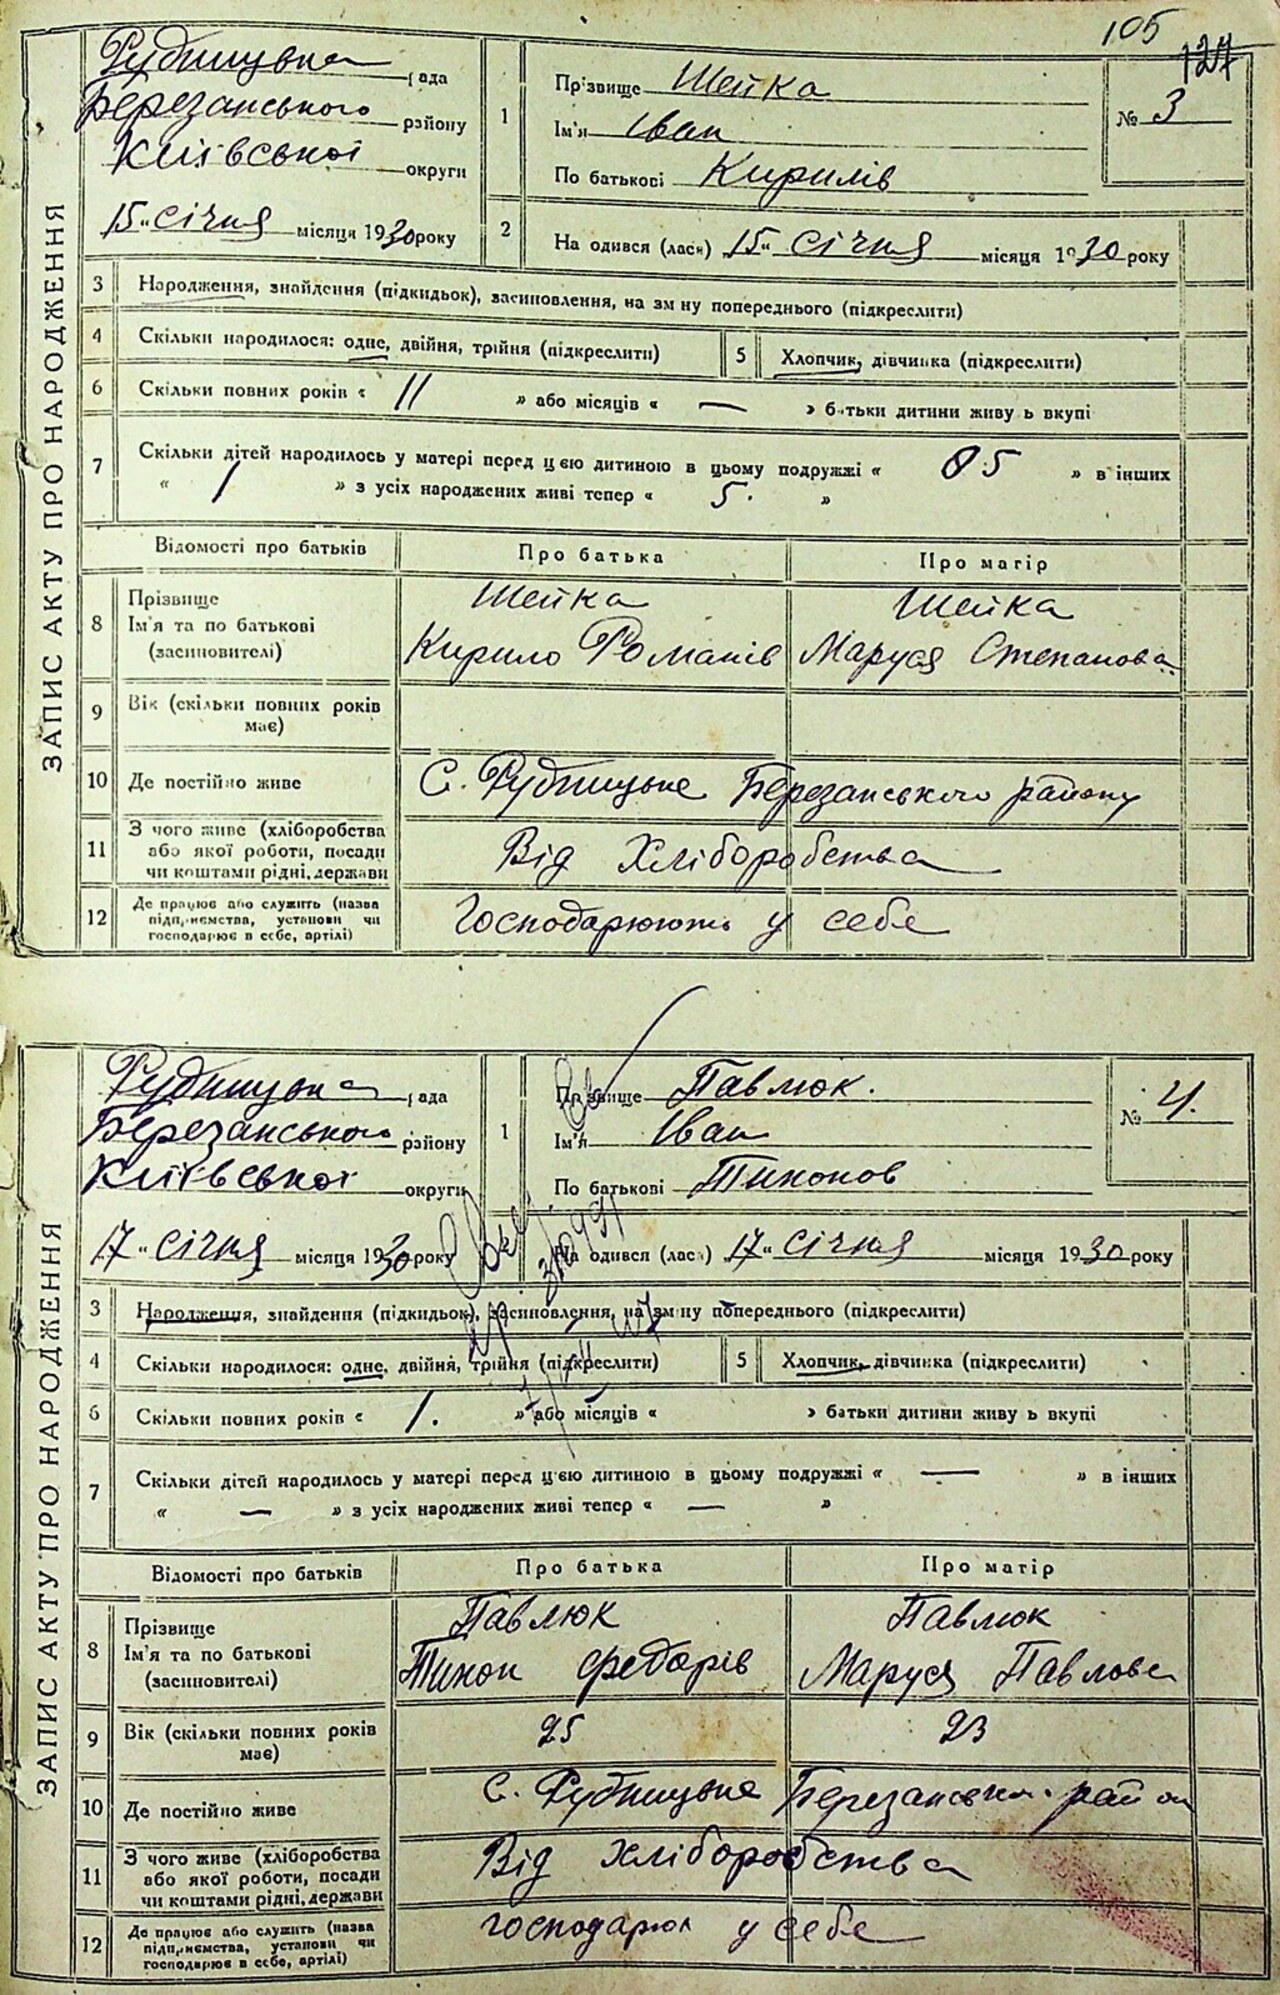 105
127
ЗАПИС АКТУ ПРО НАРОДЖЕННЯ
Рудницька рада
Березанського району
Київської округи
15 „ січня місяця 1930 року
1 Прізвище Шейка
Ім'я Іван
По батькові Кирилів
№ 3
2 Народився (лася) 15 „ січня місяця 1930 року
3 Народження, знайдення (підкидьок), засиновлення, на зміну попереднього (підкреслити)
4 Скільки народилося: одне, двійня, трійня (підкреслити) 5 Хлопчик, дівчинка (підкреслити)
6 Скільки повних років « 11 » або місяців « — » батьки дитини живуть вкупі
7 Скільки дітей народилось у матері перед цією дитиною в цьому подружжі « 5 » в інших
« 1 » з усіх народжених живі тепер « 5. »
Відомості про батьків Про батька Про матір
8 Прізвище Шейка Шейка
Ім'я та по батькові Кирило Романів Маруся Степанова
(засиновителі)
9 Вік (скільки повних років
має)
10 Де постійно живе С. Рудницьке Березанського району
11 З чого живе (хліборобства
або якої роботи, посади Від Хліборобства
чи коштами рідні, держави
12 Де працює або служить (назва
підприємства, установи чи Господарюють у себе
господарює в себе, артілі)
ЗАПИС АКТУ ПРО НАРОДЖЕННЯ
Рудницька рада
Березанського району
Київської округи
17 „ січня місяця 1930 року
1 Прізвище Павлюк.
Ім'я Іван
По батькові Тихонов
№ 4.
2 Народився (лася) 17 „ січня місяця 1930 року
3 Народження, знайдення (підкидьок), засиновлення, на зміну попереднього (підкреслити)
4 Скільки народилося: одне, двійня, трійня (підкреслити) 5 Хлопчик, дівчинка (підкреслити)
6 Скільки повних років « 1. » або місяців « » батьки дитини живуть вкупі
7 Скільки дітей народилось у матері перед цією дитиною в цьому подружжі « — » в інших
« — » з усіх народжених живі тепер « — »
Відомості про батьків Про батька Про матір
8 Прізвище Павлюк Павлюк
Ім'я та по батькові Тихон Федорів Маруся Павлова
(засиновителі)
9 Вік (скільки повних років 25 23
має)
10 Де постійно живе С. Рудницьке Березанськ. район
11 З чого живе (хліборобства
або якої роботи, посади Від Хліборобства
чи коштами рідні, держави
12 Де працює або служить (назва
підприємства, установи чи господарює у себе
господарює в себе, артілі)